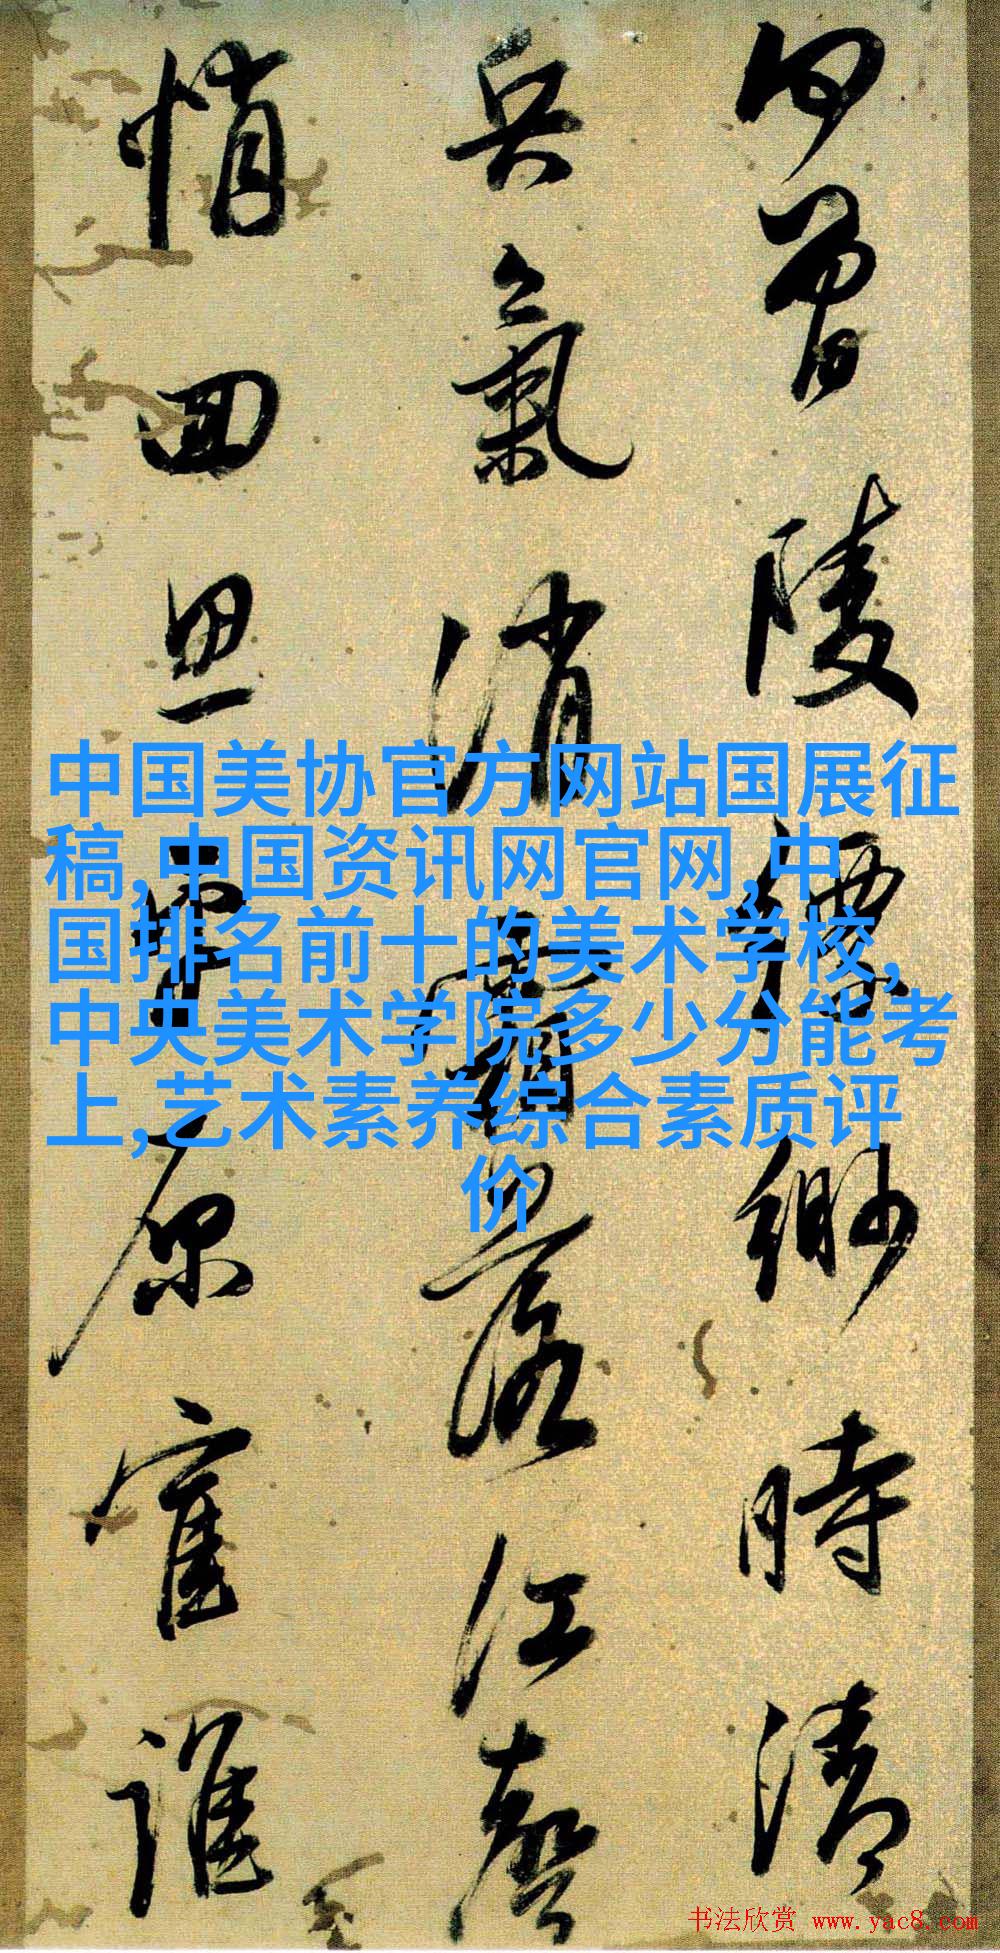 曾陵縹緲時清
兵氣消霜落江聲
悄回思中原誰
中国美协官方网站国展征
稿,中国资讯网官网,中
国排名前十的美术学校,
中央美术学院多少分能考
上,艺术素养综合素质评
价
书法欣赏 www.yac8.com